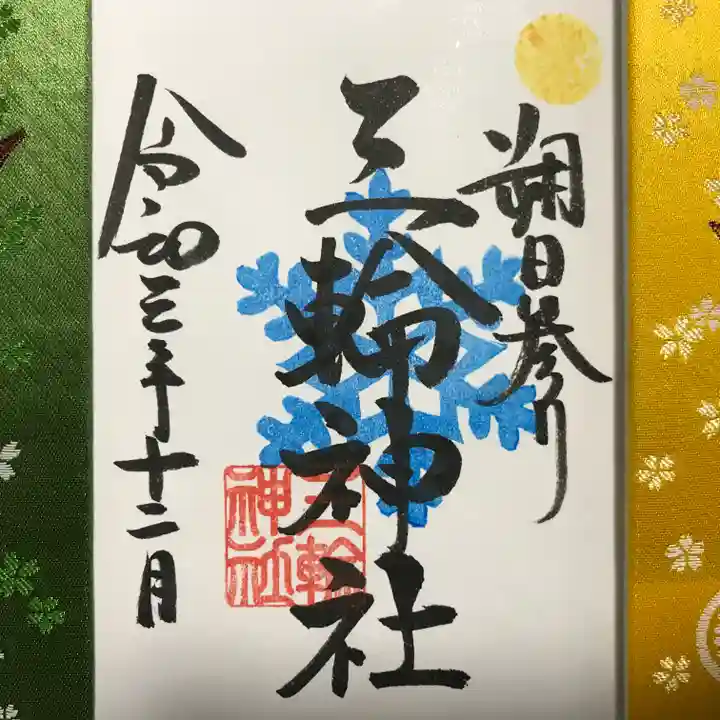 朔日参り
三輪神社
令和三年十二月
三輪
神社